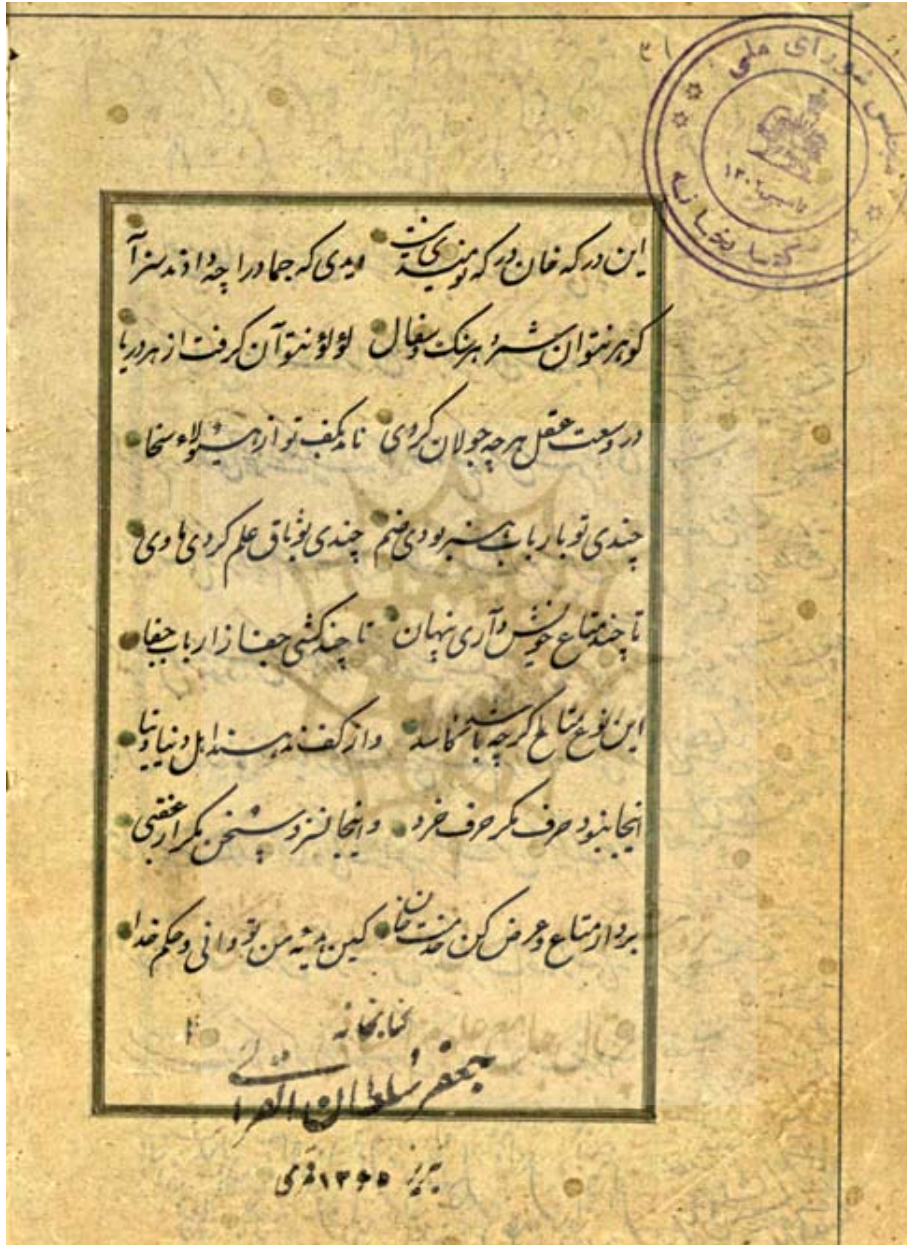 مجلس شورای ملی
تاسیس ۱۳۰۲
کتابخانه
این در که خان در که نومیدی نیست دیدی که جماد را چه دادند سزا
کوهر نتوان شمرد هر سنک و سفال لؤلؤ نتوآن کرفت از هر دریا
در وسعت عقل هر چه جولان کردی نامد بکف تو از هیولاء سخا
چندی تو بارباب هنر بودی ضم چندی بوثاق علم کردی ماوی
تا چند متاع خویش دآری پنهان تا چند کشی جفا ز ارباب جفا
این نوع متاع کرچه باشد کاسد واز کف ندهند اهل دنیا دنیا
اینجا نبود حرف مکر حرف خرد واینجا نسزد سخن مکر از عقبی
بردار متاع و عرض کن خدمت خان کین من تو دانی و حکم خدا
کتابخانه
جعفر سلطان القرائی
تبریز ۱۳۶۵ قمری